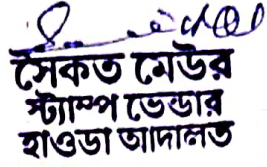 সৈকত মেউর
স্ট্যাম্প ভেন্ডার
হাওডা আদালত